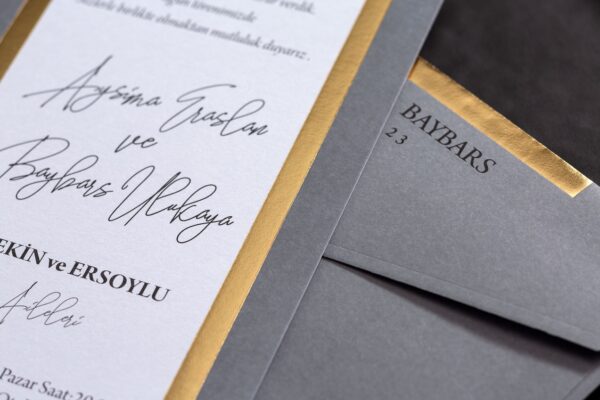 verdik.
törenimizde
birlikte olmaktan mutluluk duyarız.
Aysima Eraslan
ve
Baybars Ulukaya
EKİN ve ERSOYLU
Aileleri
Pazar Saat:20
BAYBARS
23